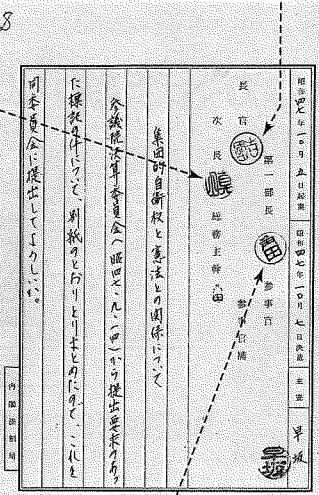 8
昭和四七年一〇月五日起案
昭和四七年一〇月七日決裁
主査
早坂
長官
次長
第一部長
総務主幹
参事官
参事官補
集団的自衛権と憲法との関係について
参議院決算委員会(昭四七、九、一四)から提出要求のあっ
た標記の件について、別紙のとおりとりまとめたので、これを
同委員会に提出してよろしいか。
内閣法制局